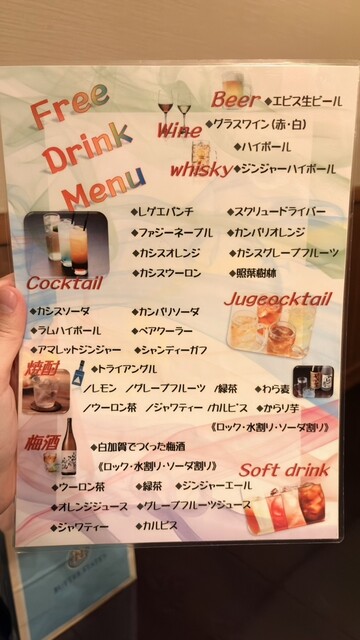 Free
Drink
Menu
Beer ◆エビス生ビール
Wine ◆グラスワイン(赤・白)
whisky ◆ハイボール
◆ジンジャーハイボール
Cocktail
◆レゲエパンチ ◆スクリュードライバー
◆ファジーネーブル ◆カンパリオレンジ
◆カシスオレンジ ◆カシスグレープフルーツ
◆カシスウーロン ◆照葉樹林
◆カシスソーダ ◆カンパリソーダ
◆ラムハイボール ◆ベアワーラー
◆アマレットジンジャー ◆シャンディーガフ
Jugecocktail
焼酎 ◆トライアングル
/レモン /グレープフルーツ /緑茶 ◆わら麦
/ウーロン茶 /ジャワティー /カルピス ◆からり芋
《ロック・水割り・ソーダ割り》
梅酒 ◆白加賀でつくった梅酒
《ロック・水割り・ソーダ割り》
Soft drink
◆ウーロン茶 ◆緑茶 ◆ジンジャーエール
◆オレンジジュース ◆グレープフルーツジュース
◆ジャワティー ◆カルピス